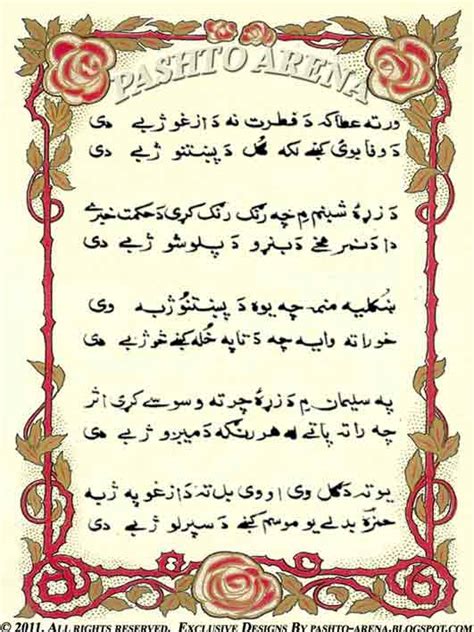 PASHTO ARENA
ورته عطا که د فطرت نه د ازغو ژبې دي
د وفا بوئ کښې لکه ګل د پښتنو ژبې دي
د زړۀ شبنم م چه رنګ رنګ کړي د حکمت خبرې
دا د نمر مخې د بنړو د پلوشو ژبې دي
ښکليه منم چه يوه د پښتنو ژبه وي
خو راته وايه چه د تا په خُله کښې څو ژبې دي
په سليمان م د زړۀ چرته وسوسے کړي اثر
چه راته پاتې له هر رنګه د ميږو ژبې دي
يو ته د ګل وي او وي بل ته د ازغو په ژبه
حمزه بدلې يو موسم کښې د سپرلو ژبې دي
© 2011. ALL RIGHTS RESERVED. EXCLUSIVE DESIGNS BY PASHTO-ARENA.BLOGSPOT.COM